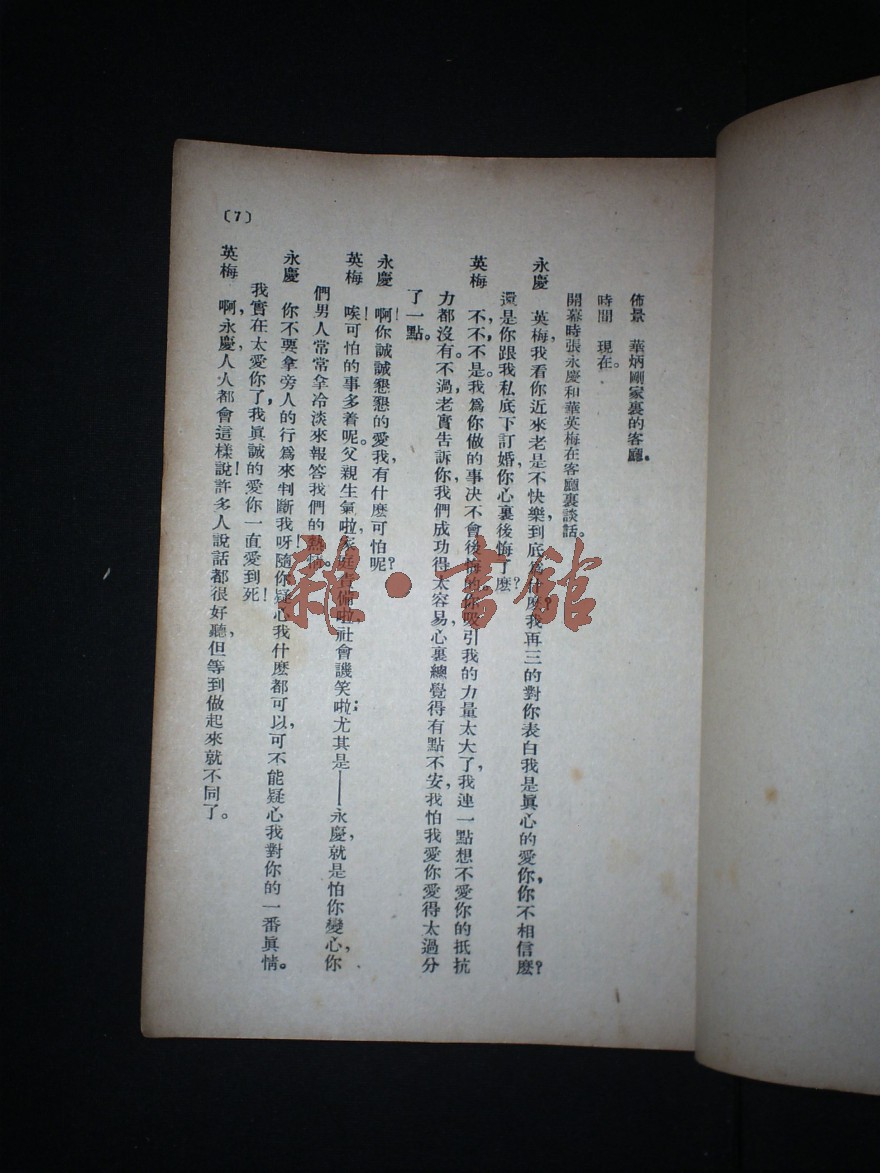 佈景　華炳剛家裏的客廳。
時間　現在。
開幕時張永慶和華英梅在客廳裏談話。
永慶　英梅，我看你近來老是不快樂到底爲什麽？我再三的對你表白我是眞心的愛你，你不相信麽？
還是你跟我私底下訂婚你心裏後悔了麽？
英梅　不，不，不是。我爲你做的事決不會後悔的。你吸引我的力量太大了，我連一點想不愛你的抵抗
力都沒有。不過，老實告訴你，我們成功得太容易，心裏總覺得有點不安，我怕我愛你愛得太過分
了一點。
永慶　啊！你誠誠懇懇的愛我，有什麽可怕呢？
英梅　唉！可怕的事多着呢。父親生氣啦，家庭責備啦，社會譏笑啦；尤其是——永慶，就是怕你變心，你
們男人常常拿冷淡來報答我們的熱情。
永慶　你不要拿旁人的行爲來判斷我呀！隨你疑心我什麽都可以，可不能疑心我對你的一番眞情。
我實在太愛你了，我眞誠的愛你一直愛到死！
英梅　啊，永慶，人人都會這樣說！許多人說話都很好聽，但等到做起來就不同了。
〔7〕
雜·書館